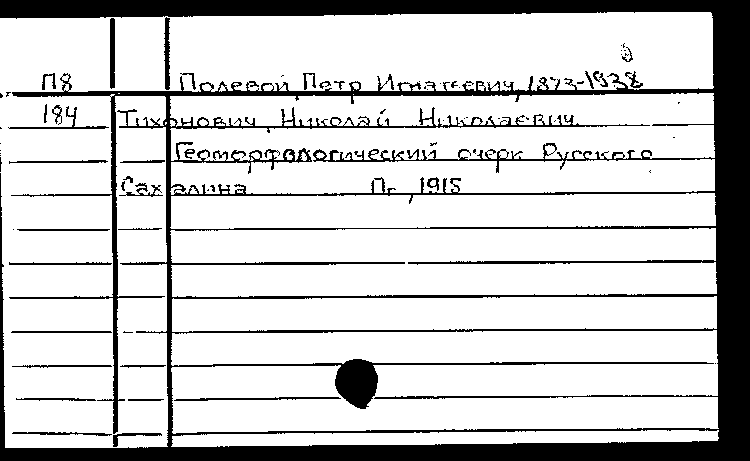 П8 Полевой, Петр Игнатьевич, 1873-1938
184 Тихонович, Николай Николаевич.
Геоморфологический очерк Русского
Сахалина. Пг, 1915